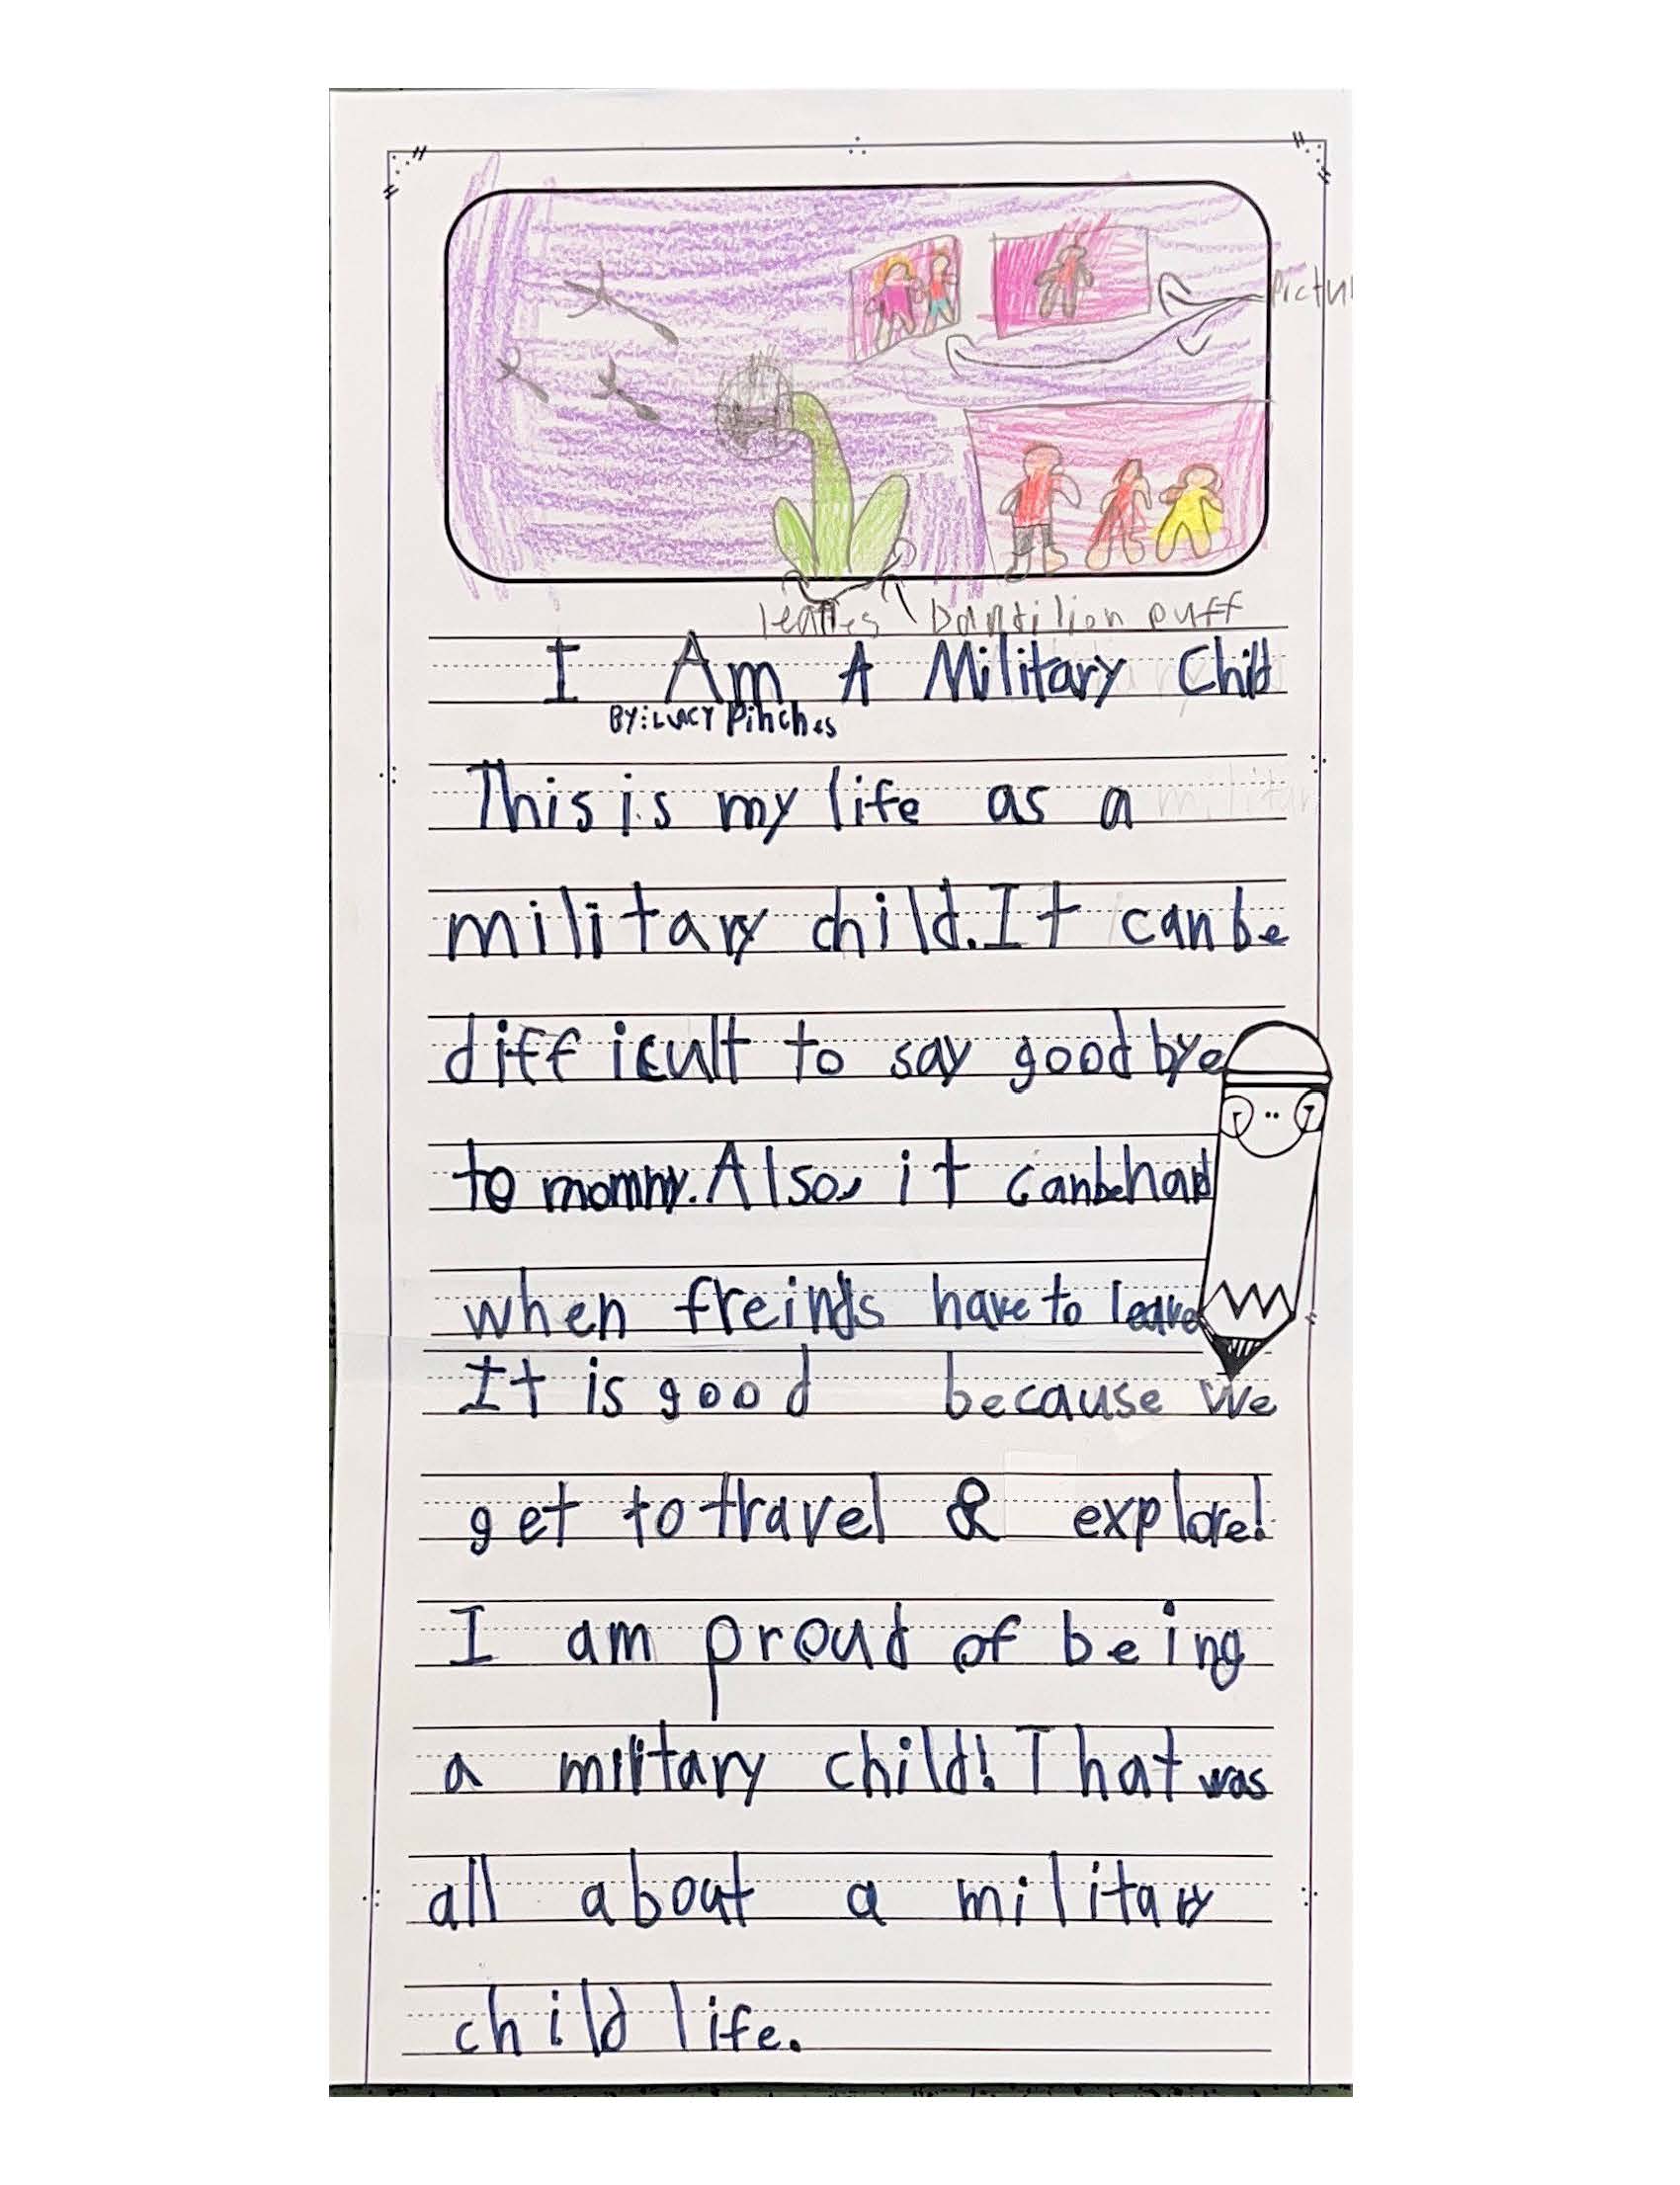 pictu
leaves dandilion puff
I Am A Military Child
BY: LUCY Pinches
This is my life as a
military child. It can be
difficult to say goodbye
to mommy. Also, it can be hard
when freinds have to leave
It is good because we
get to travel & explore!
I am proud of being
a military child! That was
all about a military
child life.